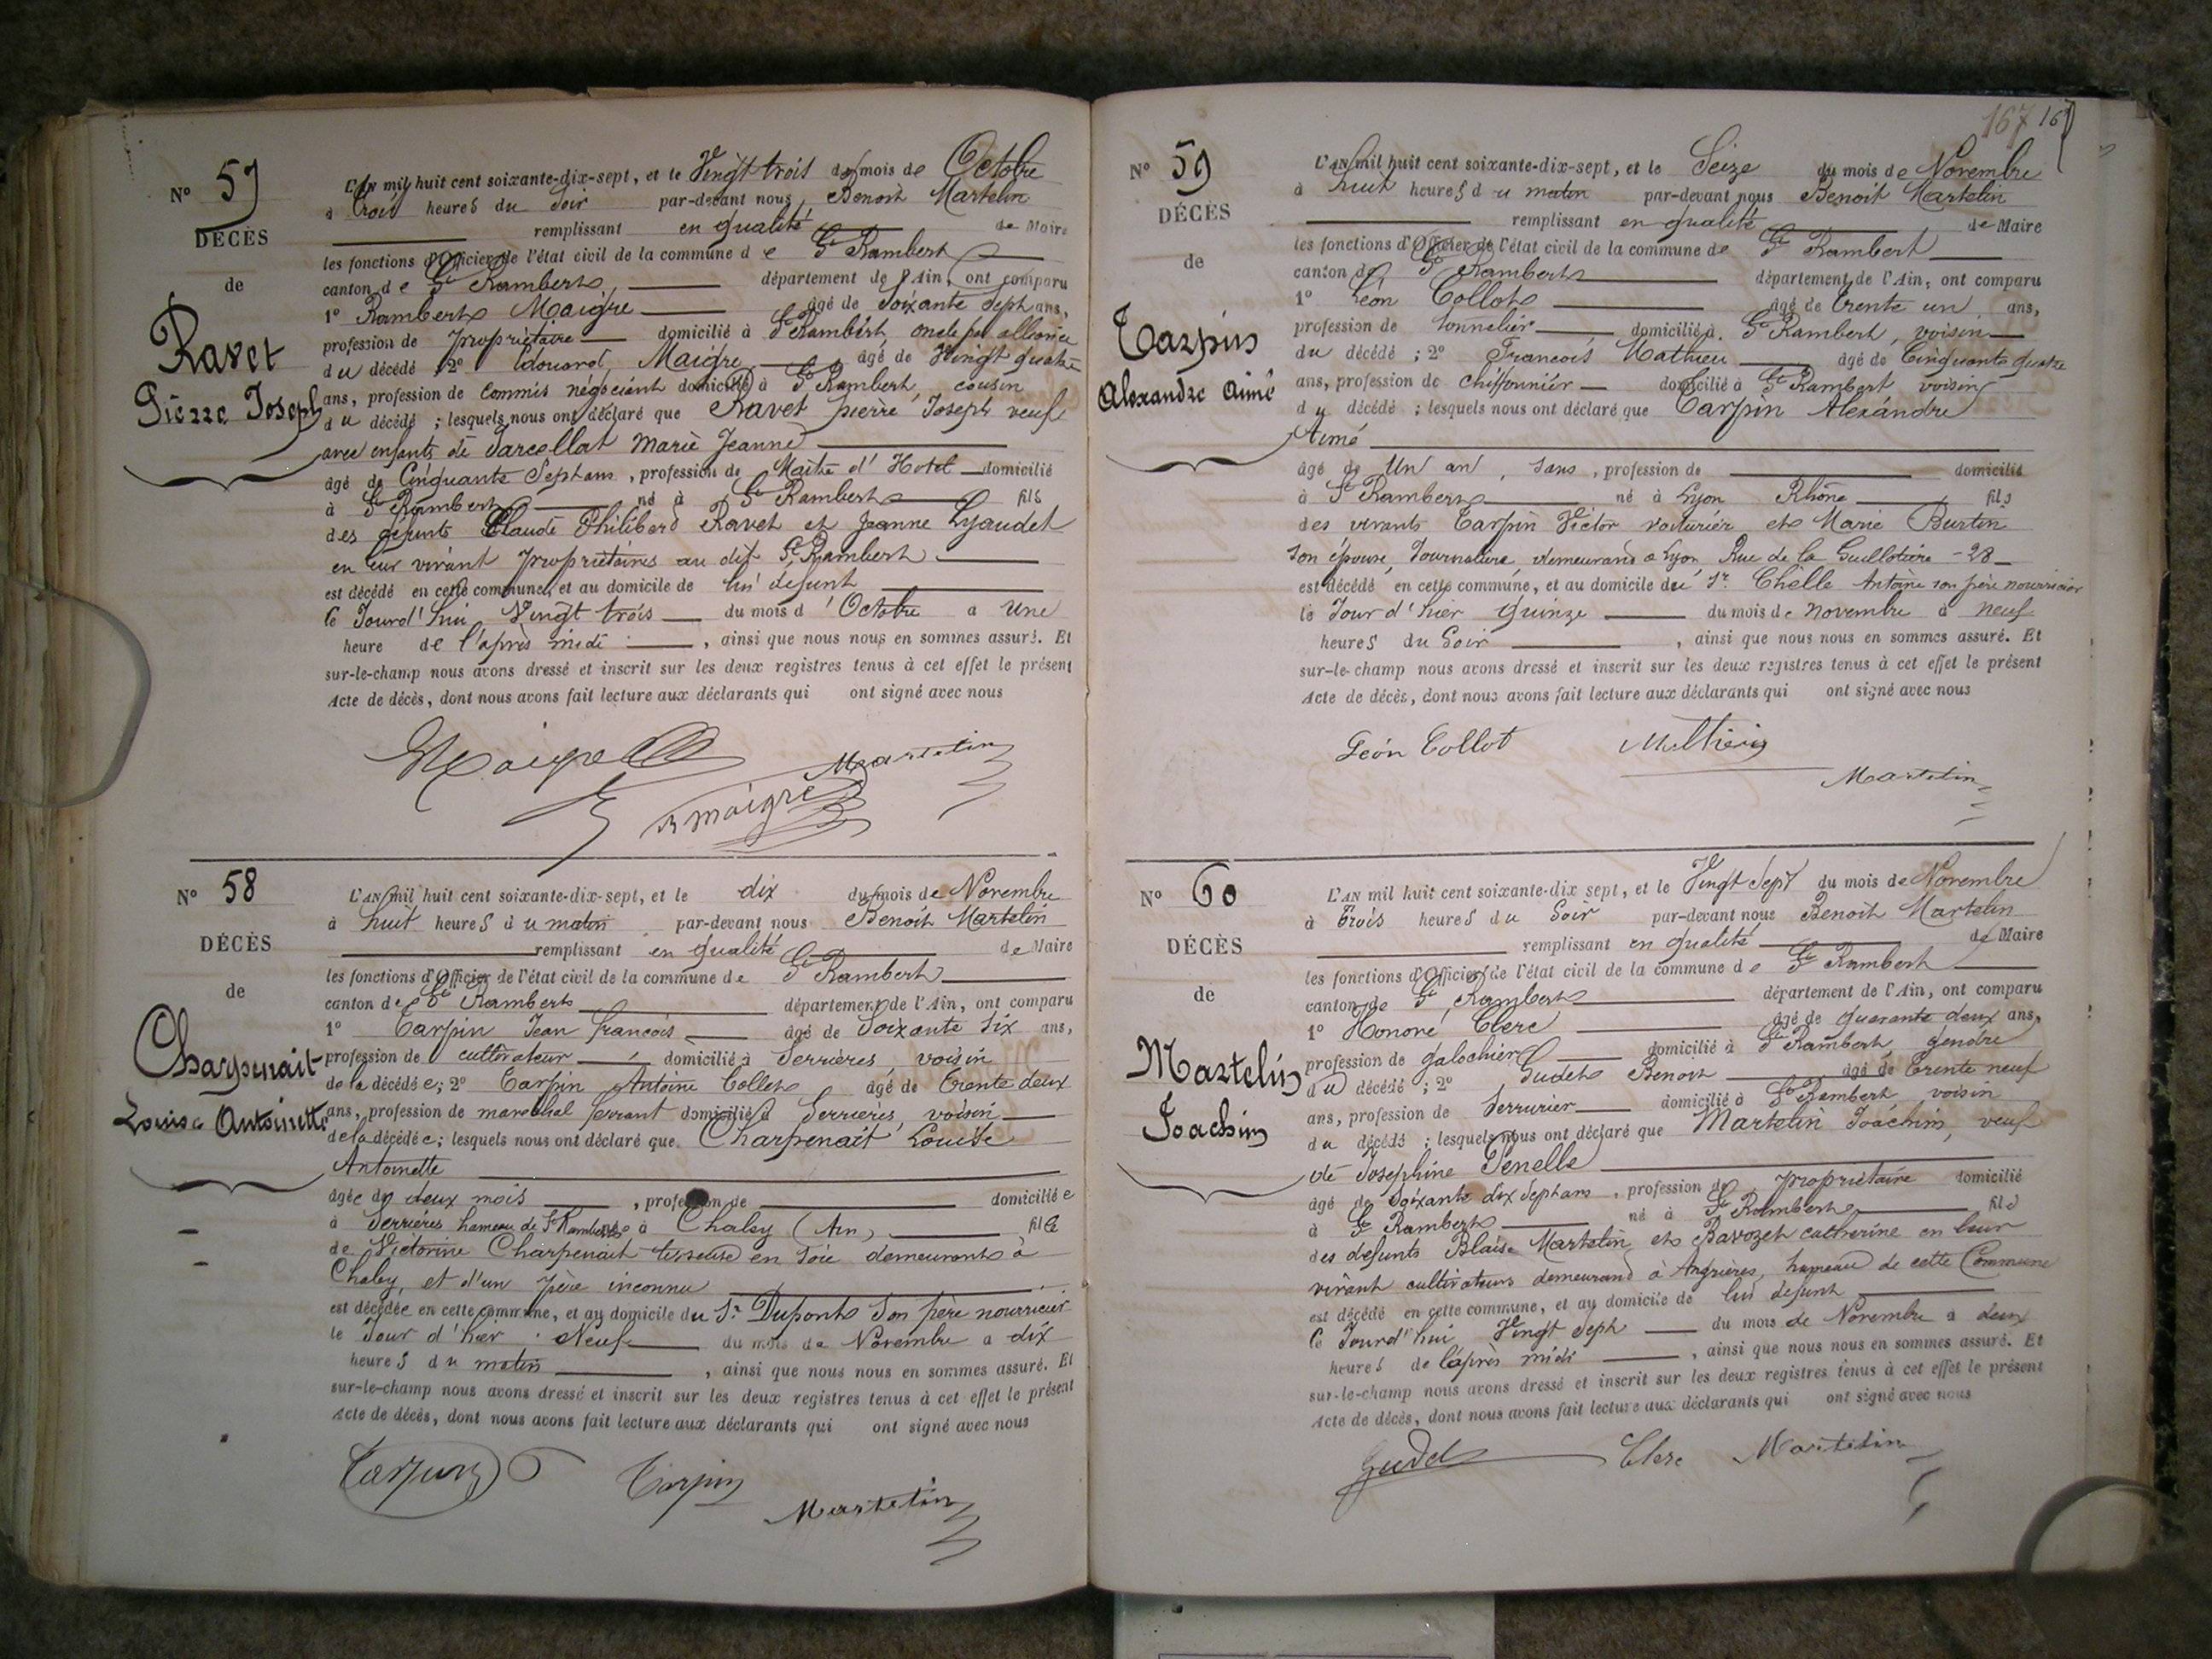 N° 57
DÉCÈS
de
Ravet
Pierre Joseph
L'AN mil huit cent soixante-dix-sept, et le Vingt trois du mois de Octobre
à trois heures du Soir par-devant nous Benoit Martelin
remplissant en qualité de Maire
les fonctions d'Officier de l'état civil de la commune de St Rambert
canton de St Rambert, département de l'Ain, ont comparu
1° Rambert Maigre âgé de Soixante Sept ans,
profession de propriétaire domicilié à St Rambert, oncle par alliance
du décédé 2° Edouard Maigre âgé de Vingt quatre
ans, profession de Commis négociant domicilié à St Rambert, cousin
du décédé ; lesquels nous ont déclaré que Ravet pierre Joseph veuf
avec enfants de Sarcellat Marie Jeanne
âgé de Cinquante Sept ans, profession de Maitre d'Hotel domicilié
à St Rambert né à St Rambert fils
des défunts Claude Philiberd Ravet et Jeanne Lyaudet
en leur vivant propriétaires au dit St Rambert
est décédé en cette commune, et au domicile de lui défunt
le Jourd'hui Vingt trois du mois d'Octobre a Une
heure de l'après midi, ainsi que nous nous en sommes assuré. Et
sur-le-champ nous avons dressé et inscrit sur les deux registres tenus à cet effet le présent
Acte de décès, dont nous avons fait lecture aux déclarants qui ont signé avec nous
Maigre Martelin
R maigre
N° 58
DÉCÈS
de
Charpenait
Louise Antoinette
L'AN mil huit cent soixante-dix-sept, et le dix du mois de Novembre
à huit heures du matin par-devant nous Benoit Martelin
remplissant en qualité de Maire
les fonctions d'Officier de l'état civil de la commune de St Rambert
canton de St Rambert département de l'Ain, ont comparu
1° Carpin Jean francois âgé de Soixante Six ans,
profession de cultivateur domicilié à Serrières, voisin
de la décédée; 2° Tarpin Antoine Collet âgé de Trente deux
ans, profession de maréchal ferrant domicilié à Serrières, voisin
de la décédée; lesquels nous ont déclaré que Charpenait Louise
Antoinette
âgée de deux mois, profession de domiciliée
à Serrières hameau de St Rambert née à Chaley (Ain) fille
de Victorine Charpenait tisseuse en soie demeurant à
Chaley, et d'un père inconnu
est décédée en cette commune, et au domicile du Sr Dupont Son père nourricier
le Jour d'hier Neuf du mois de Novembre a dix
heures du matin, ainsi que nous nous en sommes assuré. Et
sur-le-champ nous avons dressé et inscrit sur les deux registres tenus à cet effet le présent
Acte de décès, dont nous avons fait lecture aux déclarants qui ont signé avec nous
Tarpin Tarpin
Martelin
167 167
N° 59
DÉCÈS
de
Tarpin
Alexandre Aimé
L'AN mil huit cent soixante-dix-sept, et le Seize du mois de Novembre
à huit heures du matin par-devant nous Benoit Martelin
remplissant en qualité de Maire
les fonctions d'Officier de l'état civil de la commune de St Rambert
canton de St Rambert département de l'Ain, ont comparu
1° Léon Collot âgé de trente un ans,
profession de tonnelier domicilié à St Rambert, voisin
du décédé ; 2° Francois Mathieu âgé de Cinquante quatre
ans, profession de chiffonnier domicilié à St Rambert voisin
du décédé ; lesquels nous ont déclaré que Tarpin Alexandre
Aimé
âgé de Un an, sans, profession de domicilié
à St Rambert né à Lyon Rhône fils
des vivants Tarpin Victor voiturier et Marie Burtin
Son épouse, Journalière demeurand a Lyon Rue de la Guillotière - 28
est décédé en cette commune, et au domicile du Sr. Chelle Antoine son père nourricier
le Jour d'hier Quinze du mois de novembre à neuf
heures du Soir, ainsi que nous nous en sommes assuré. Et
sur-le-champ nous avons dressé et inscrit sur les deux registres tenus à cet effet le présent
Acte de décès, dont nous avons fait lecture aux déclarants qui ont signé avec nous
Léon Collot Mathieu
Martelin
N° 60
DÉCÈS
de
Martelin
Joachin
L'AN mil huit cent soixante-dix sept, et le Vingt Sept du mois de Novembre
à trois heures du Soir par-devant nous Benoit Martelin
remplissant en qualité de Maire
les fonctions d'Officier de l'état civil de la commune de St Rambert
canton de St Rambert département de l'Ain, ont comparu
1° Honoré Clerc âgé de quarante deux ans,
profession de galochier domicilié à St Rambert, gendre
du décédé ; 2° Gudet Benoit âgé de trente neuf
ans, profession de Serrurier domicilié à St Rambert voisin
du décédé ; lesquels nous ont déclaré que Martelin Joachim, veuf
de Josephine Penelle
âgé de Soixante dix Sept ans, profession de propriétaire domicilié
à St Rambert né à St Rambert fils
des defunts Blaise Martelin et Bavozet catherine en leur
vivant cultivateurs demeurand à Angrières, hameau de cette Commune
est décédé en cette commune, et au domicile de lui defunt
le Jourd'hui Vingt Sept du mois de Novembre a deux
heures de l'après midi, ainsi que nous nous en sommes assuré. Et
sur-le-champ nous avons dressé et inscrit sur les deux registres tenus à cet effet le présent
Acte de décès, dont nous avons fait lecture aux déclarants qui ont signé avec nous
Gudet Clerc Martelin